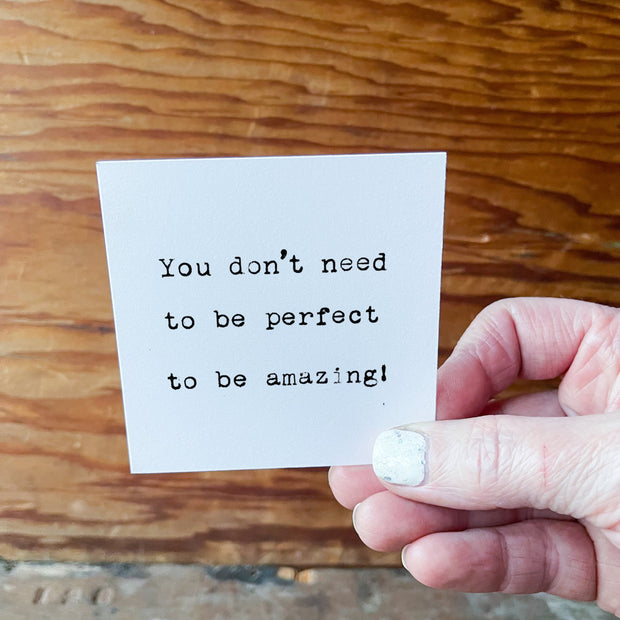 You don't need
to be perfect
to be amazing!